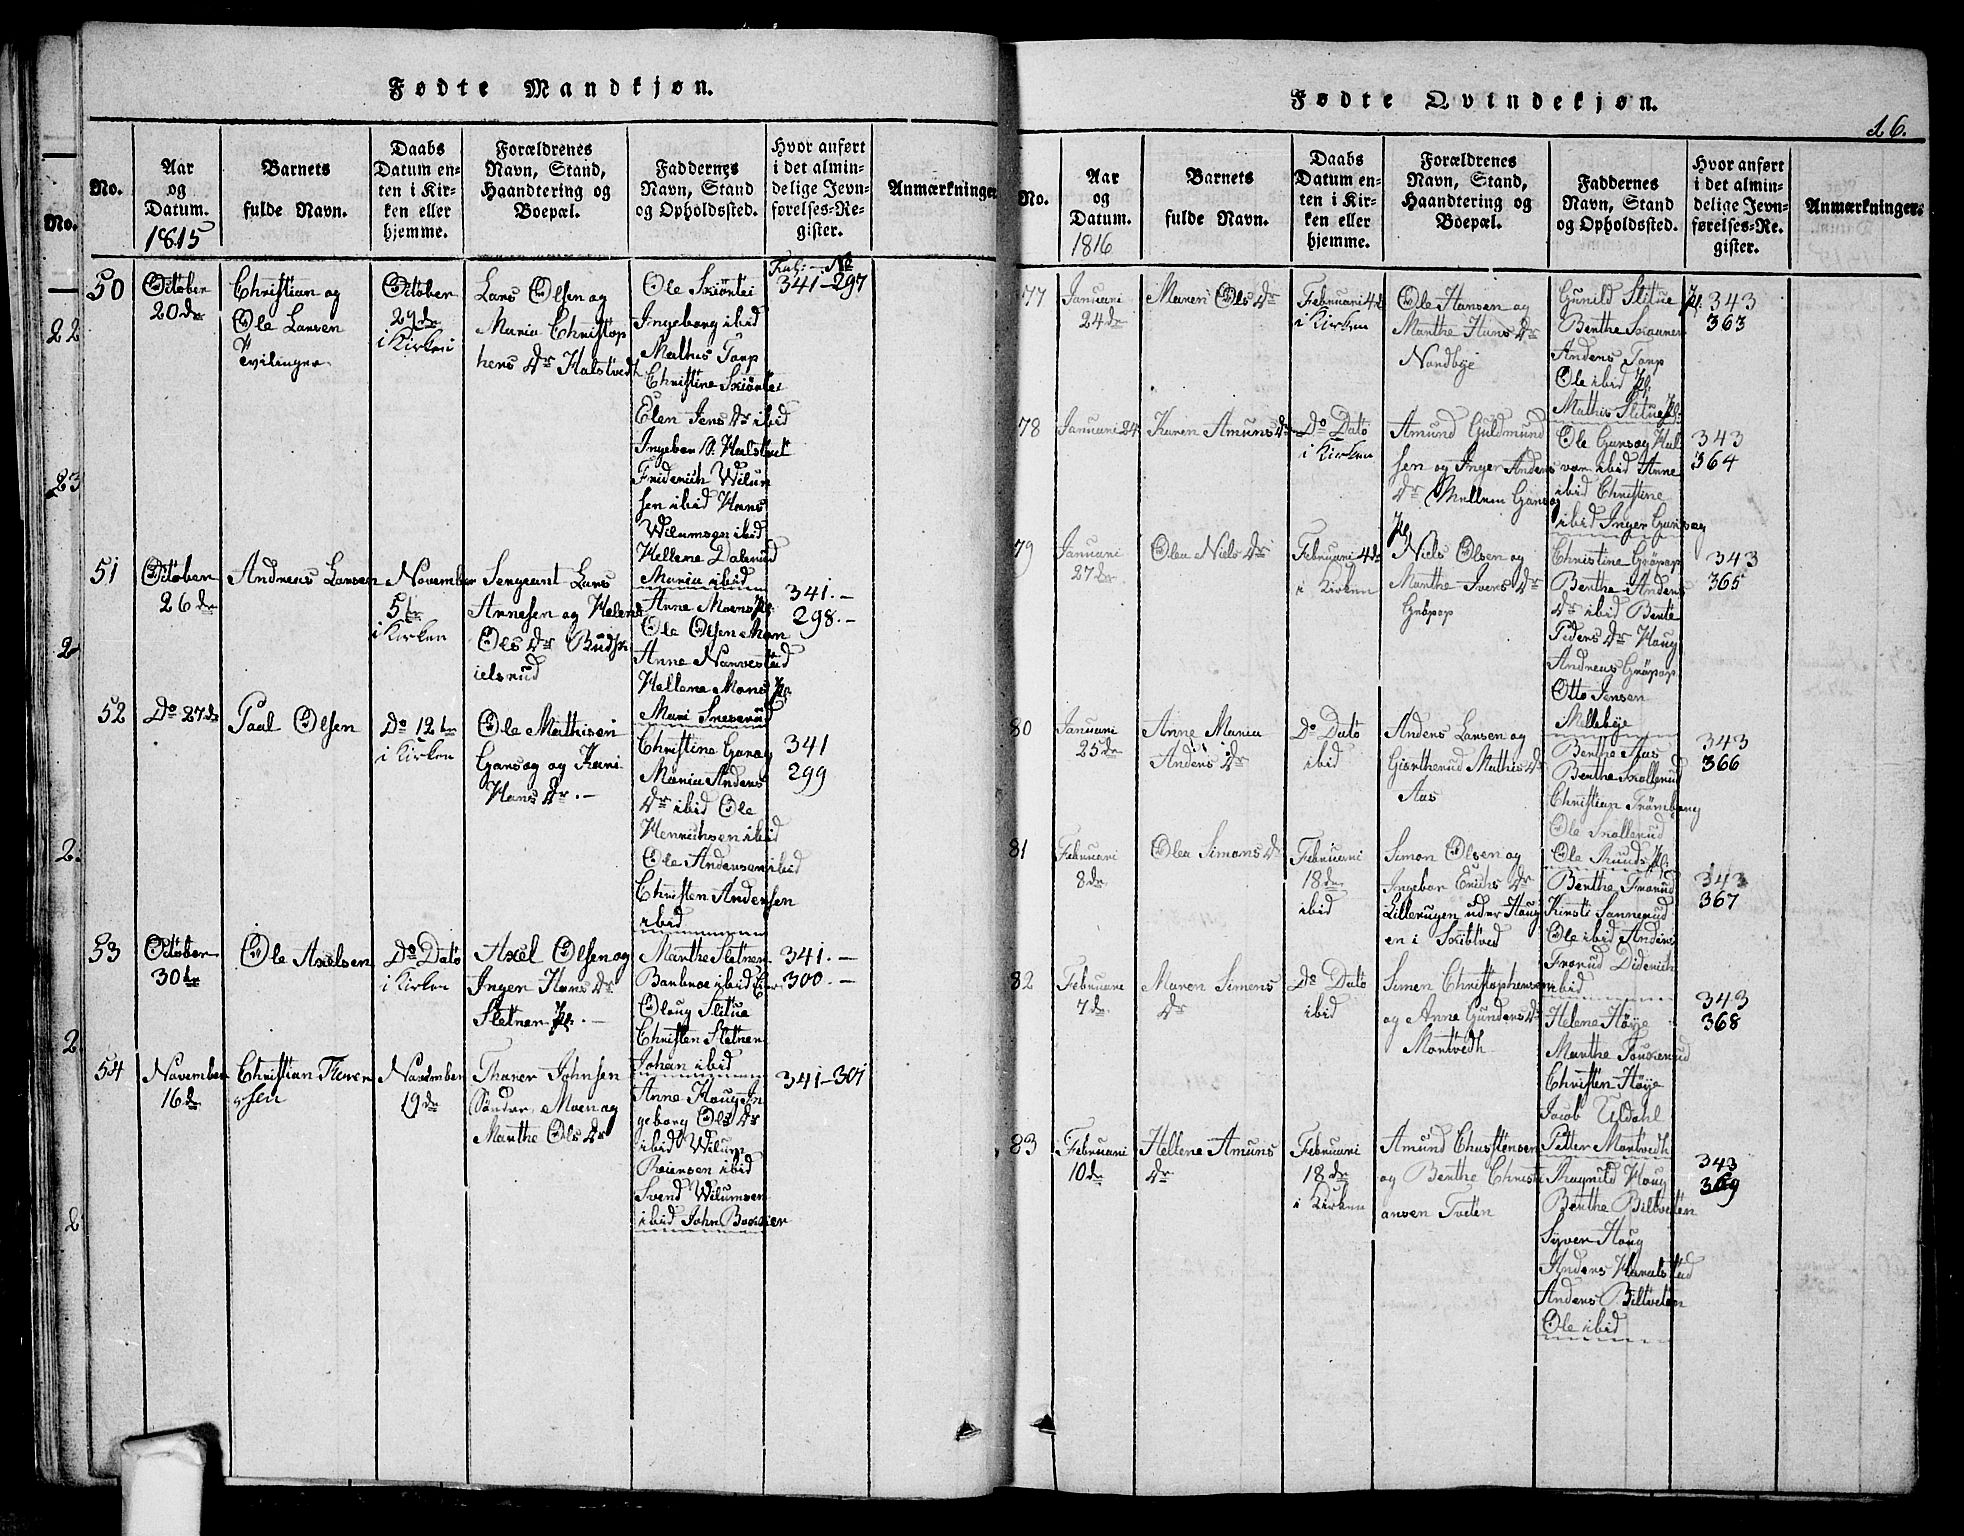 Fødte Mandkjøn.
No.
Aar
og
Datum.
1815
Barnets
fulde Navn.
Daabs
Datum en-
ten i Kir-
ken eller
hjemme.
Forældrenes
Navn, Stand,
Haandtering og
Boepæl.
Faddernes
Navn, Stand
og Opholdssted.
Hvor anført
i det almin-
delige Jevn-
førelses-Re-
gister.
Anmærkninger
50
October
20de
Christian og
Ole Larsen
Tvilinger
October
29de
i Kirken
Lars Olsen og
Maria Christop
hers Dr Halstvedt
Ole Skiöntei
Ingeborg ibid
Mathis Torp
Christine Skiöntei
Elen Jens Dr ibid
Friderich Wilum
sen ibid Hans
Wilumsen ibid
Hellene
Maria ibid
No
341-297
51
October
26de
Andreas Larsen
November
5te
i Kirken
Sergeant Lars
Annesen og Helene
Ols Dr
ielsrud
Anne Moens
Ole Olsen Moen
Anne Narvestad
Hellene Moens
Mari
341.-
298.-
52
Do 27de
Paal Olsen
Do 12te
i Kirken
Ole Mathisen
Garsøg og Kari
Hans Dr.-
Christine Garsøg
Maria Anders
Dr ibid Ole
Henrichsen ibid
Ole Andersen ibid
Christen Andersen
ibid
341
299
53
October
30te
Ole Axelsen
Do Dato
i Kirken
Axel Olsen og
Inger Hans Dr
Sletner
Marthe Sletner
Barbroe ibid
Oloug Slitue
Christen Sletner
Johan ibid
341.-
300.-
54
November
16de
Christian Thorer
sen
November
19de
Thorer Johnsen
Søndre Moen og
Marthe Ols Dr
Anne Houg In
geborg Ols Dr
ibid Wilum
Reiersen ibid
Svend Wilumsen
ibid John
341-301
Fødte Qvindekjøn.
16.
No.
Aar
og
Datum.
1816
Barnets
fulde Navn.
Daabs
Datum en-
ten i Kir-
ken eller
hjemme.
Forældrenes
Navn, Stand,
Haandtering og
Boepæl.
Faddernes
Navn, Stand
og Opholdssted.
Hvor anført
i det almin-
delige Jevn-
førelses-Re-
gister.
Anmærkninger.
77
Januari
24de
Maren Ols Dr
Februari 4de
i Kirken
Ole Hansen og
Marthe Hans Dr
Nordbye
Gunild Slitue
Benthe
Anders Torp
Ole ibid
Mathis Slitue
343
363
78
Januari 24
Karen Amuns Dr
Do Dato
i Kirken
Amund Guldmund
sen og Inger Anders
Dr Mellem Garsøg
Ole Garsøg Hal
vor ibid Anne
ibid Christine
ibid Inger Garsøg
343
364
79
Januari
27de
Olea Niels Dr
Februari 4de
i Kirken
Niels Olsen og
Marthe Ivers Dr
Gröpop
Christine Gröpop
Benthe Anders
Dr ibid Bente
Peders Dr Houg
Andreas Gröpop
Otto Jensen
Mellebye
343
365
80
Januari
25de
Anne Maria
Anders Dr
Do Dato
ibid
Anders Larsen og
Giertherud Mathis Dr
Aas
Benthe Aas
Benthe Skollerud
Christian Trömborg
Ole Skollerud
Ole Ruud
343
366
81
Februari
8de
Olea Simons Dr
Februari
18de
ibid
Simon Olsen og
Ingebor Erichs Dr
Lillerugen uder Houg
en i Skibtved
Benthe Frorud
Kirsti Sannerud
Ole ibid Anders
Frorud Diderich
ibid
343
367
82
Februari
7de
Maren Simens
Dr
Do Dato
ibid
Simen Christophersen
og Anne Gunders Dr
Mortvedt
Helene Høye
Marthe
Christen Høye
Jacob Uldahl
Petter Mortvedt
343
368
83
Februari
10de
Hellene Amuns
Dr
Februari
18de
i Kirken
Amund Christensen
og Benthe Christi
ansen Tveten
Ragnild Houg
Benthe Biltveten
Syver Houg
Anders Haralstad
Anders Biltveten
Ole ibid
343
369
No.
22
23
2
2.
2
2